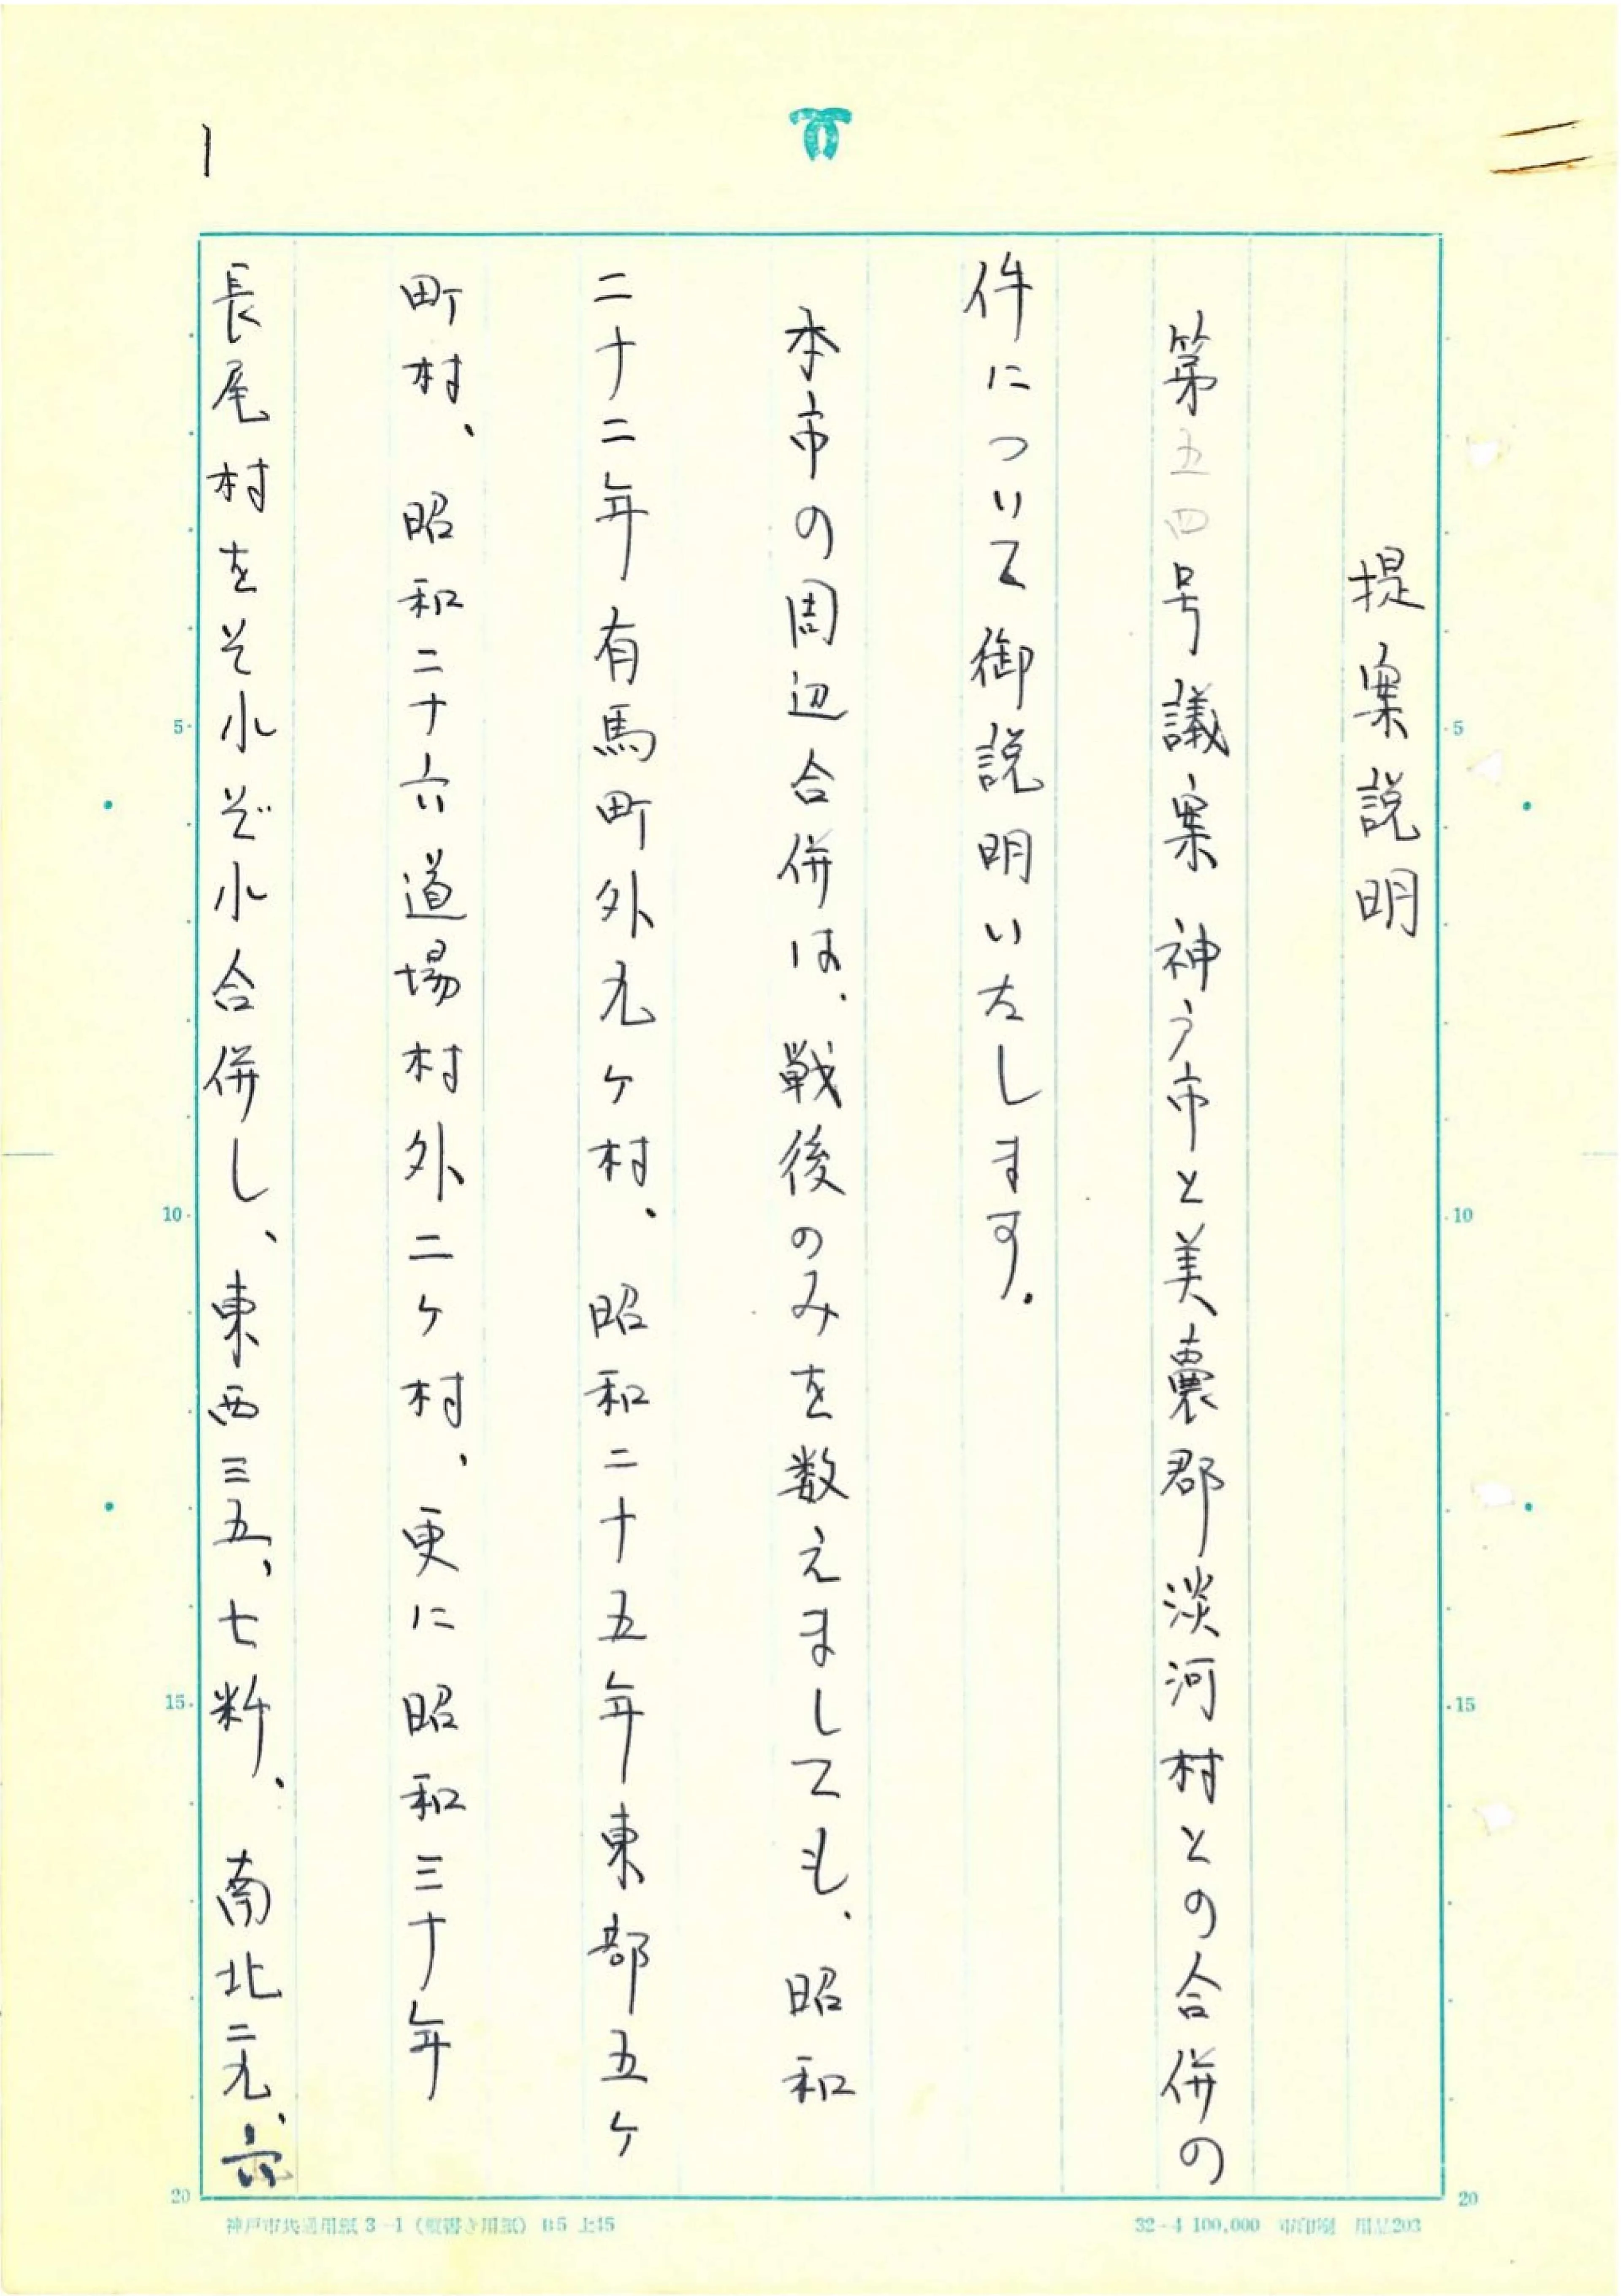 二
提案説明
第五四号議案 神戸市と美嚢郡淡河村との合併の
件について御説明いたします。
本市の周辺合併は、戦後のみを数えましても、昭和
二十二年有馬町外九ヶ村、昭和二十五年東部五ヶ
町村、昭和二十六道場村外二ヶ村、更に昭和三十年
長尾村をそれぞれ合併し、東西三五、七粁、南北二九、六
1
5
10
15
20
5
10
15
20
32-4 100,000 市印刷 用品203
神戸市共通用紙 3-1 (縦書き用紙) B5 上45